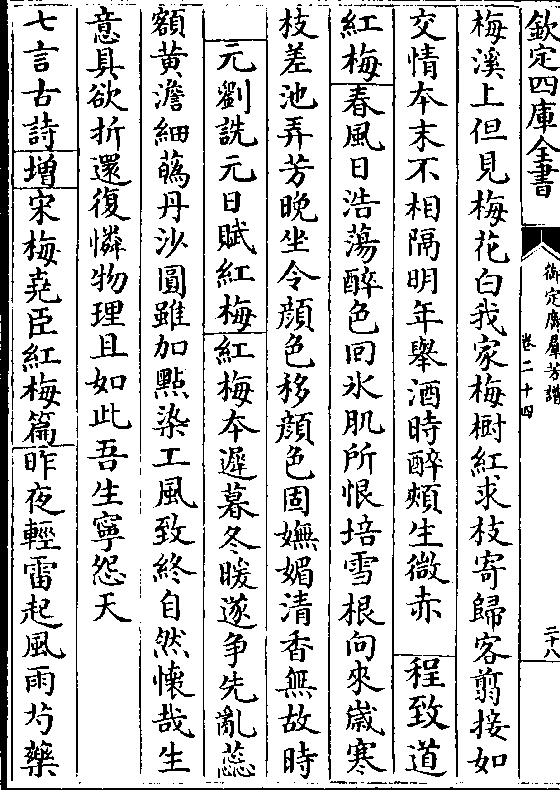 欽定四庫全書
御定廣羣芳譜
卷二十四
二十八
梅溪上但見梅花白我家梅樹紅求枝寄歸客翦接如
交情本末不相隔明年舉酒時醉頰生微赤 程致道
紅梅春風日浩蕩醉色回氷肌所恨培雪根向來嵗寒
枝差池弄芳晩坐令顔色移顔色固嫵媚清香無故時
元劉詵元日賦紅梅紅梅本遲暮冬暖遂争先亂蕊
額黄澹細蘤丹沙圓雖加點染工風致終自然懐哉生
意具欲折還復憐物理且如此吾生寧怨天
七言古詩増宋梅堯臣紅梅篇昨夜輕雷起風雨芍藥